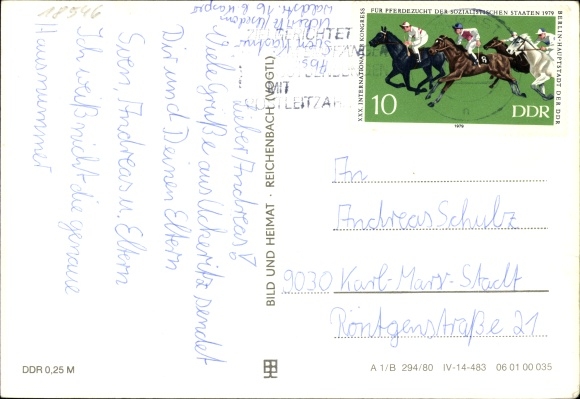 18946
Lieber Andreas!
Viele Grüße aus Ückeritz sendet
Dir und Deinen Eltern
Sven Andreas u. Eltern
Ich weiß nicht die genaue
Hausnummer
Abs
Sven
BILD UND HEIMAT · REICHENBACH (VOGTL)
MIT
POSTLEITZAHL
XXX. INTERNATIONALER KONGRESS
FÜR PFERDEZUCHT DER SOZIALISTISCHEN STAATEN 1979
BERLIN-HAUPTSTADT DER DDR
8
10
DDR
1979
An
Andreas Schulz
9030 Karl-Marx-Stadt
Röntgenstraße 21
DDR 0,25 M
A 1/B 294/80 IV-14-483 06 01 00 035